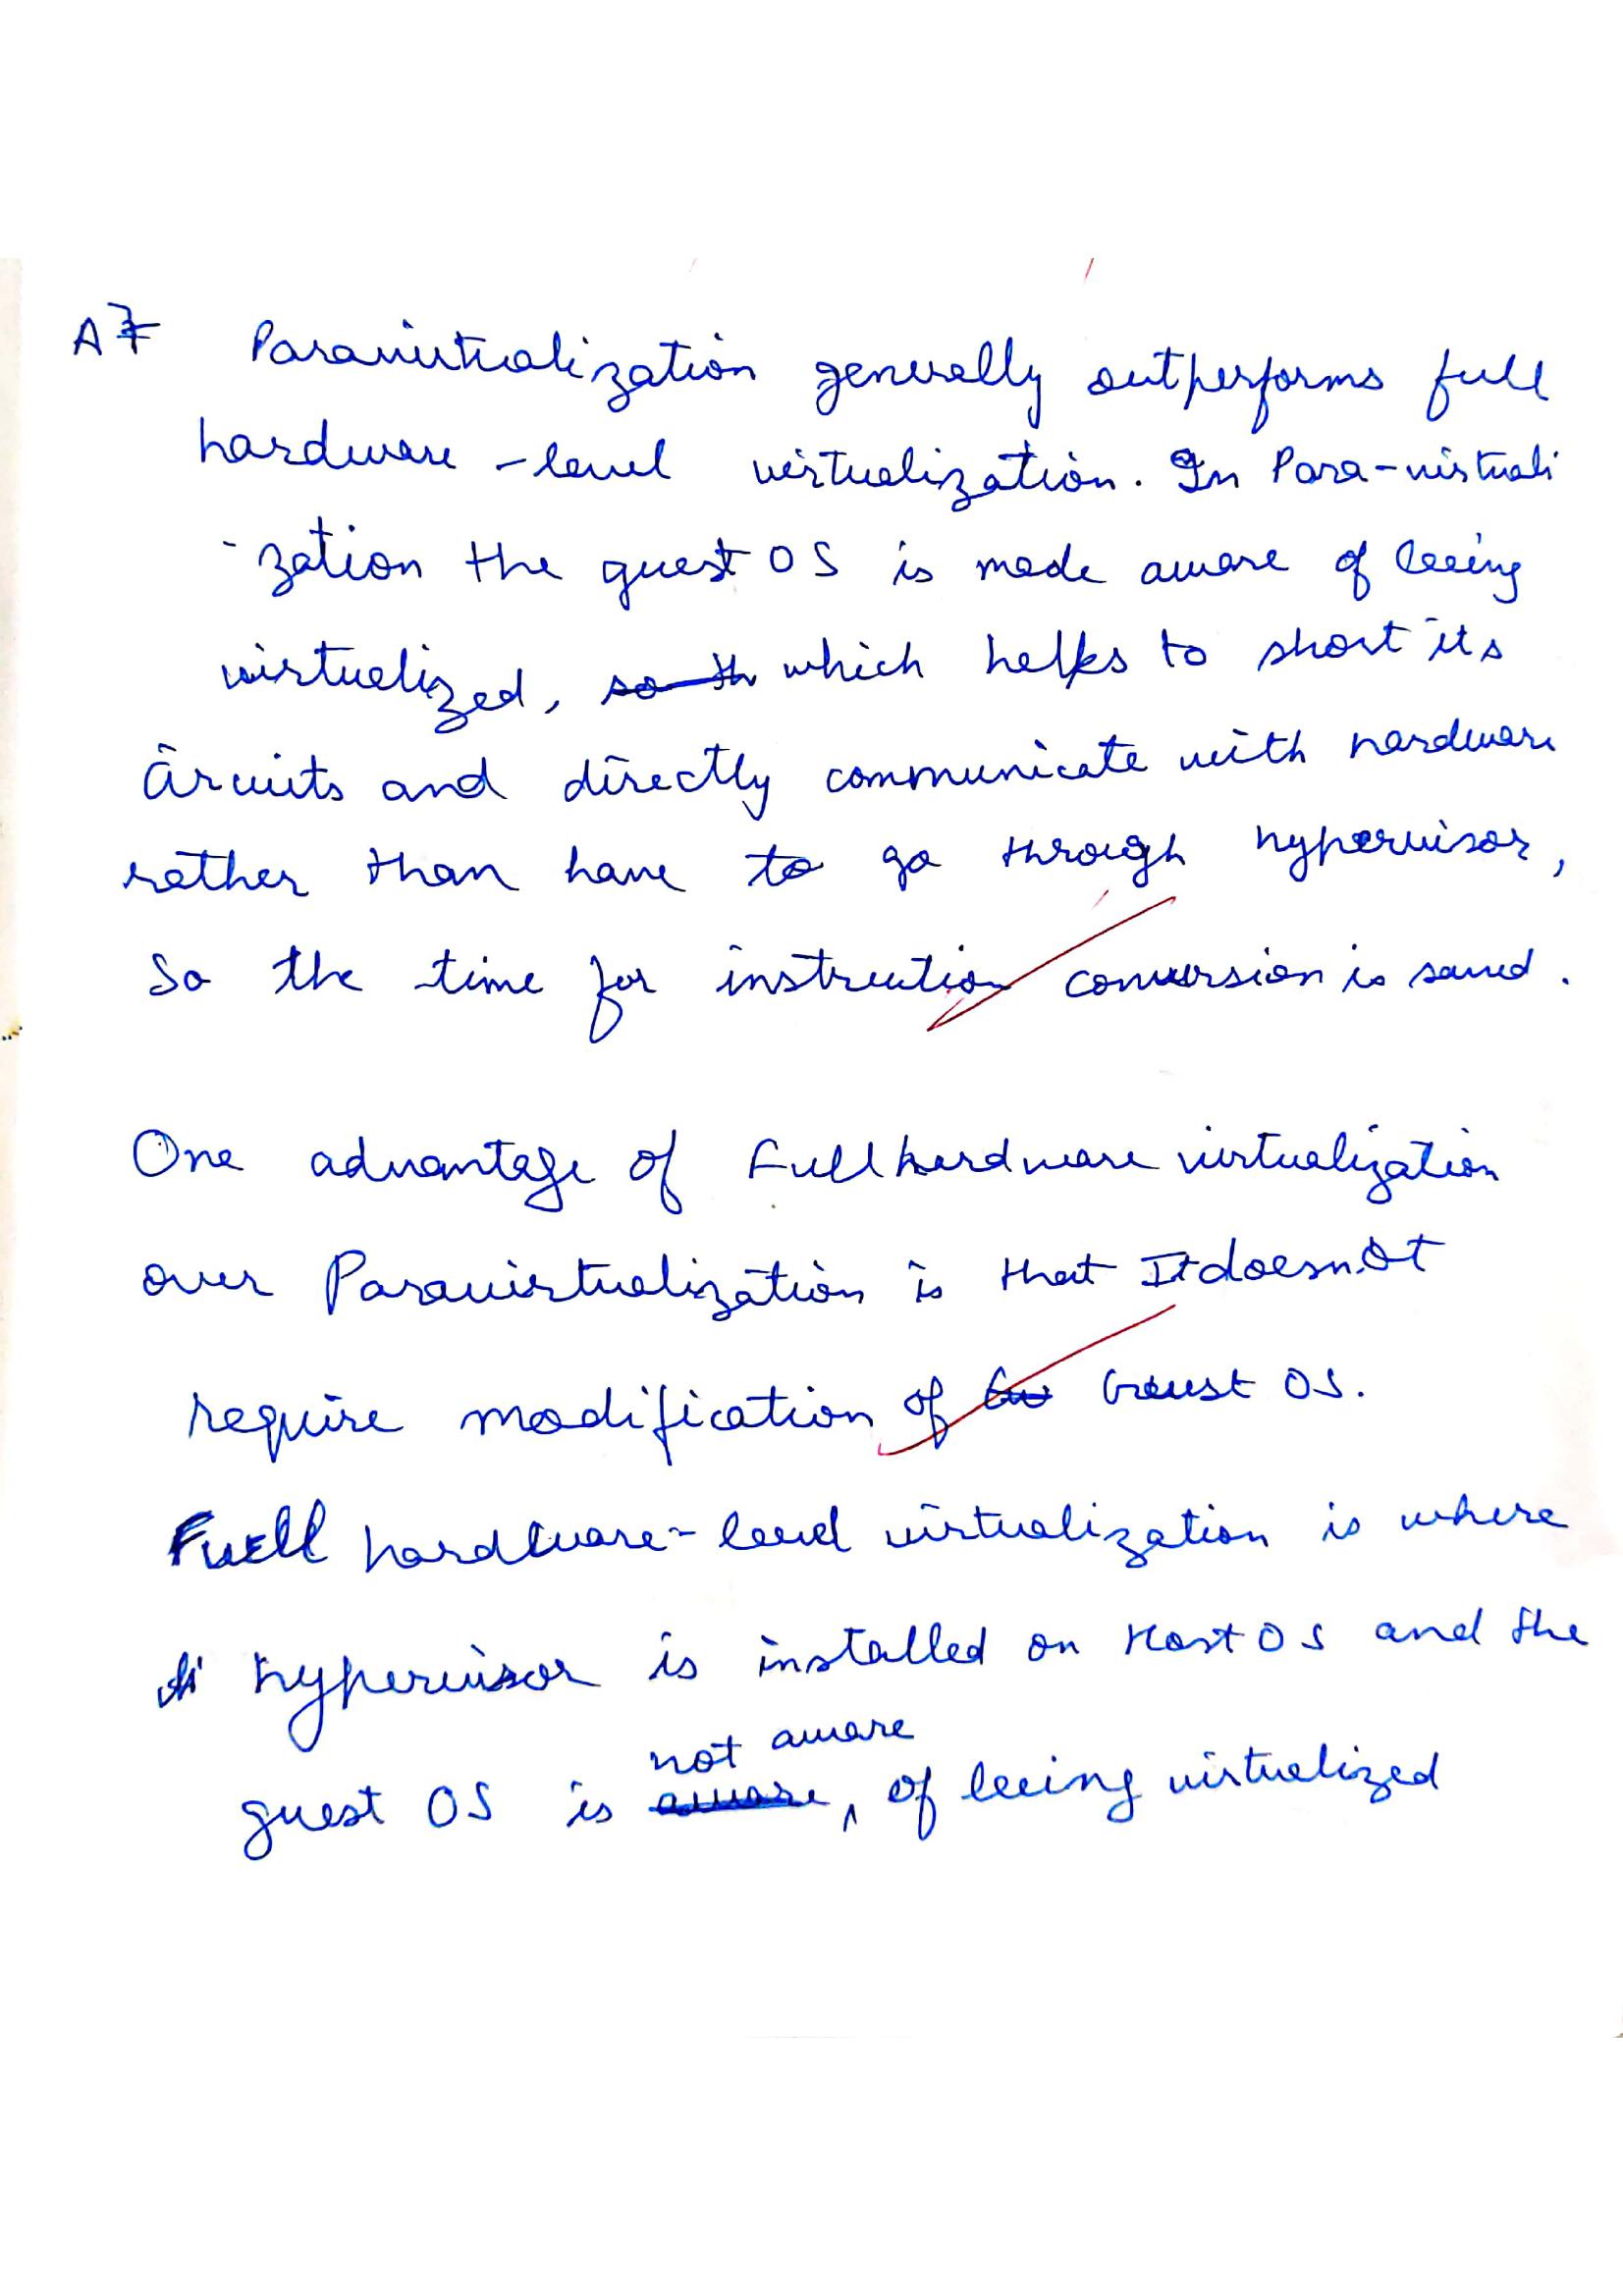 A7 Paravirtualization generally outperforms full
hardware-level virtualization. In Para-virtuali
-zation the guest OS is made aware of being
virtualized, so th which helps to short its
circuits and directly communicate with hardware
rather than have to go through hypervisor,
So the time for instruction conversion is saved.
One advantage of Full hardware virtualization
over Paravirtualization is that It doesnot
require modification of Gu Guest OS.
Full hardware-level virtualization is where
hypervisor is installed on Host OS and the
not aware
guest OS is aware, ^ of being virtualized